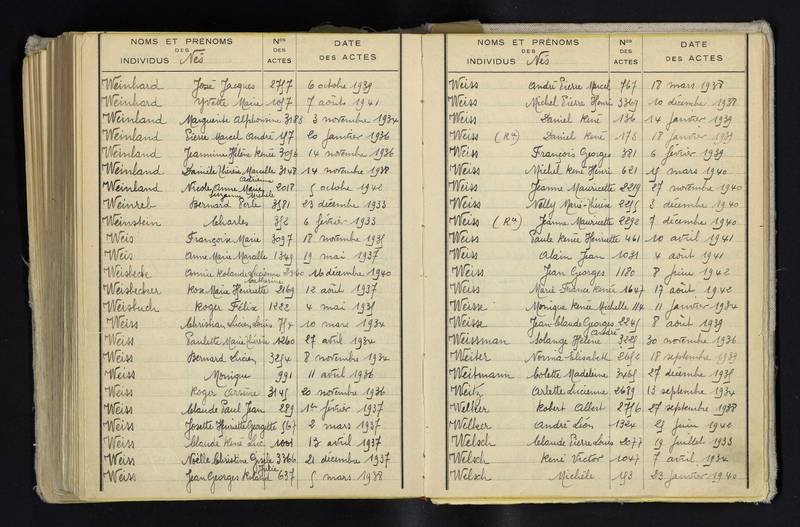 NOMS ET PRÉNOMS DES INDIVIDUS Nés Nos DES ACTES DATE DES ACTES
Weinhard José Jacques 6 octobre 1939
Weinhard Yvette Marie 7 août 1941
Weinland Marguerite Alphonsine 3183 3 novembre 1934
Weinland Pierre Marcel André 20 janvier 1936
Weinland Jeannine Hélène Renée 3096 14 novembre 1936
Weinland Marcelle 3148 14 novembre 1938
Weinland Nicole Anne Marie 2018 5 octobre 1942
Bernard 3581 23 décembre 1933
Weinstein Charles 6 février 1933
Weis Françoise Marie 3097 18 novembre
Weis Anne Marie Marcelle 1349 19 mai 1937
Weisbeck Annie Rolande Lucienne 16 décembre 1940
Weisbecker Rose Marie Henriette 2169 12 août 1937
Weisbuch Roger Félix 1222 4 mai
Weiss Christian Lucien Louis 10 mars 1934
Weiss Paulette Marie 1260 27 avril 1934
Weiss Bernard Lucien 8 novembre 1934
Weiss Monique 991 11 avril 1936
Weiss Roger Arsène 20 novembre 1936
Weiss Claude Paul Jean 289 1er février 1937
Weiss Josette Henriette Georgette 567 2 mars 1937
Weiss Claude René Luc 1001 13 avril 1937
Weiss Noëlle Christine Gisèle Julie 3366 21 décembre 1937
Weiss Jean Georges Roland 637 5 mars 1938
NOMS ET PRÉNOMS DES INDIVIDUS Nés Nos DES ACTES DATE DES ACTES
Weiss André Pierre Marcel 767 18 mars 1938
Weiss Michel Pierre Henri 3369 10 décembre 1938
Weiss Daniel René 136 14 janvier 1939
Weiss (Rt) Daniel René 178 18 janvier 1939
Weiss François Georges 381 6 février 1939
Weiss Michel René Henri 621 mars 1940
Weiss Jeanne Mauricette 2219 27 novembre 1940
Weiss Nelly 3 décembre 1940
Weiss (Rt) Jeanne Mauricette 2292 7 décembre 1940
Weiss Paule Renée Henriette 461 10 avril 1941
Weiss Alain Jean 1031 4 août 1941
Weiss Jean Georges 1180 8 juin 1942
Weiss Marie France Renée 1647 17 août 1942
Weisse Monique Renée Michelle 114 11 janvier 1934
Weisse Jean Claude Georges André 8 août 1939
Weissman Solange Hélène 30 novembre 1936
Weiter Norma Elisabeth 18 septembre 1939
Weitmann Colette Madeleine 27 décembre
Weitz Arlette Lucienne 2689 13 septembre 1934
Welker Robert Albert 27 septembre 1938
Welker André Léon 1324 juin 1942
Welsch Claude Pierre Louis 2077 19 juillet 1933
Welsch René Victor 1047 7 avril 1934
Welsch Michèle 23 janvier 1940